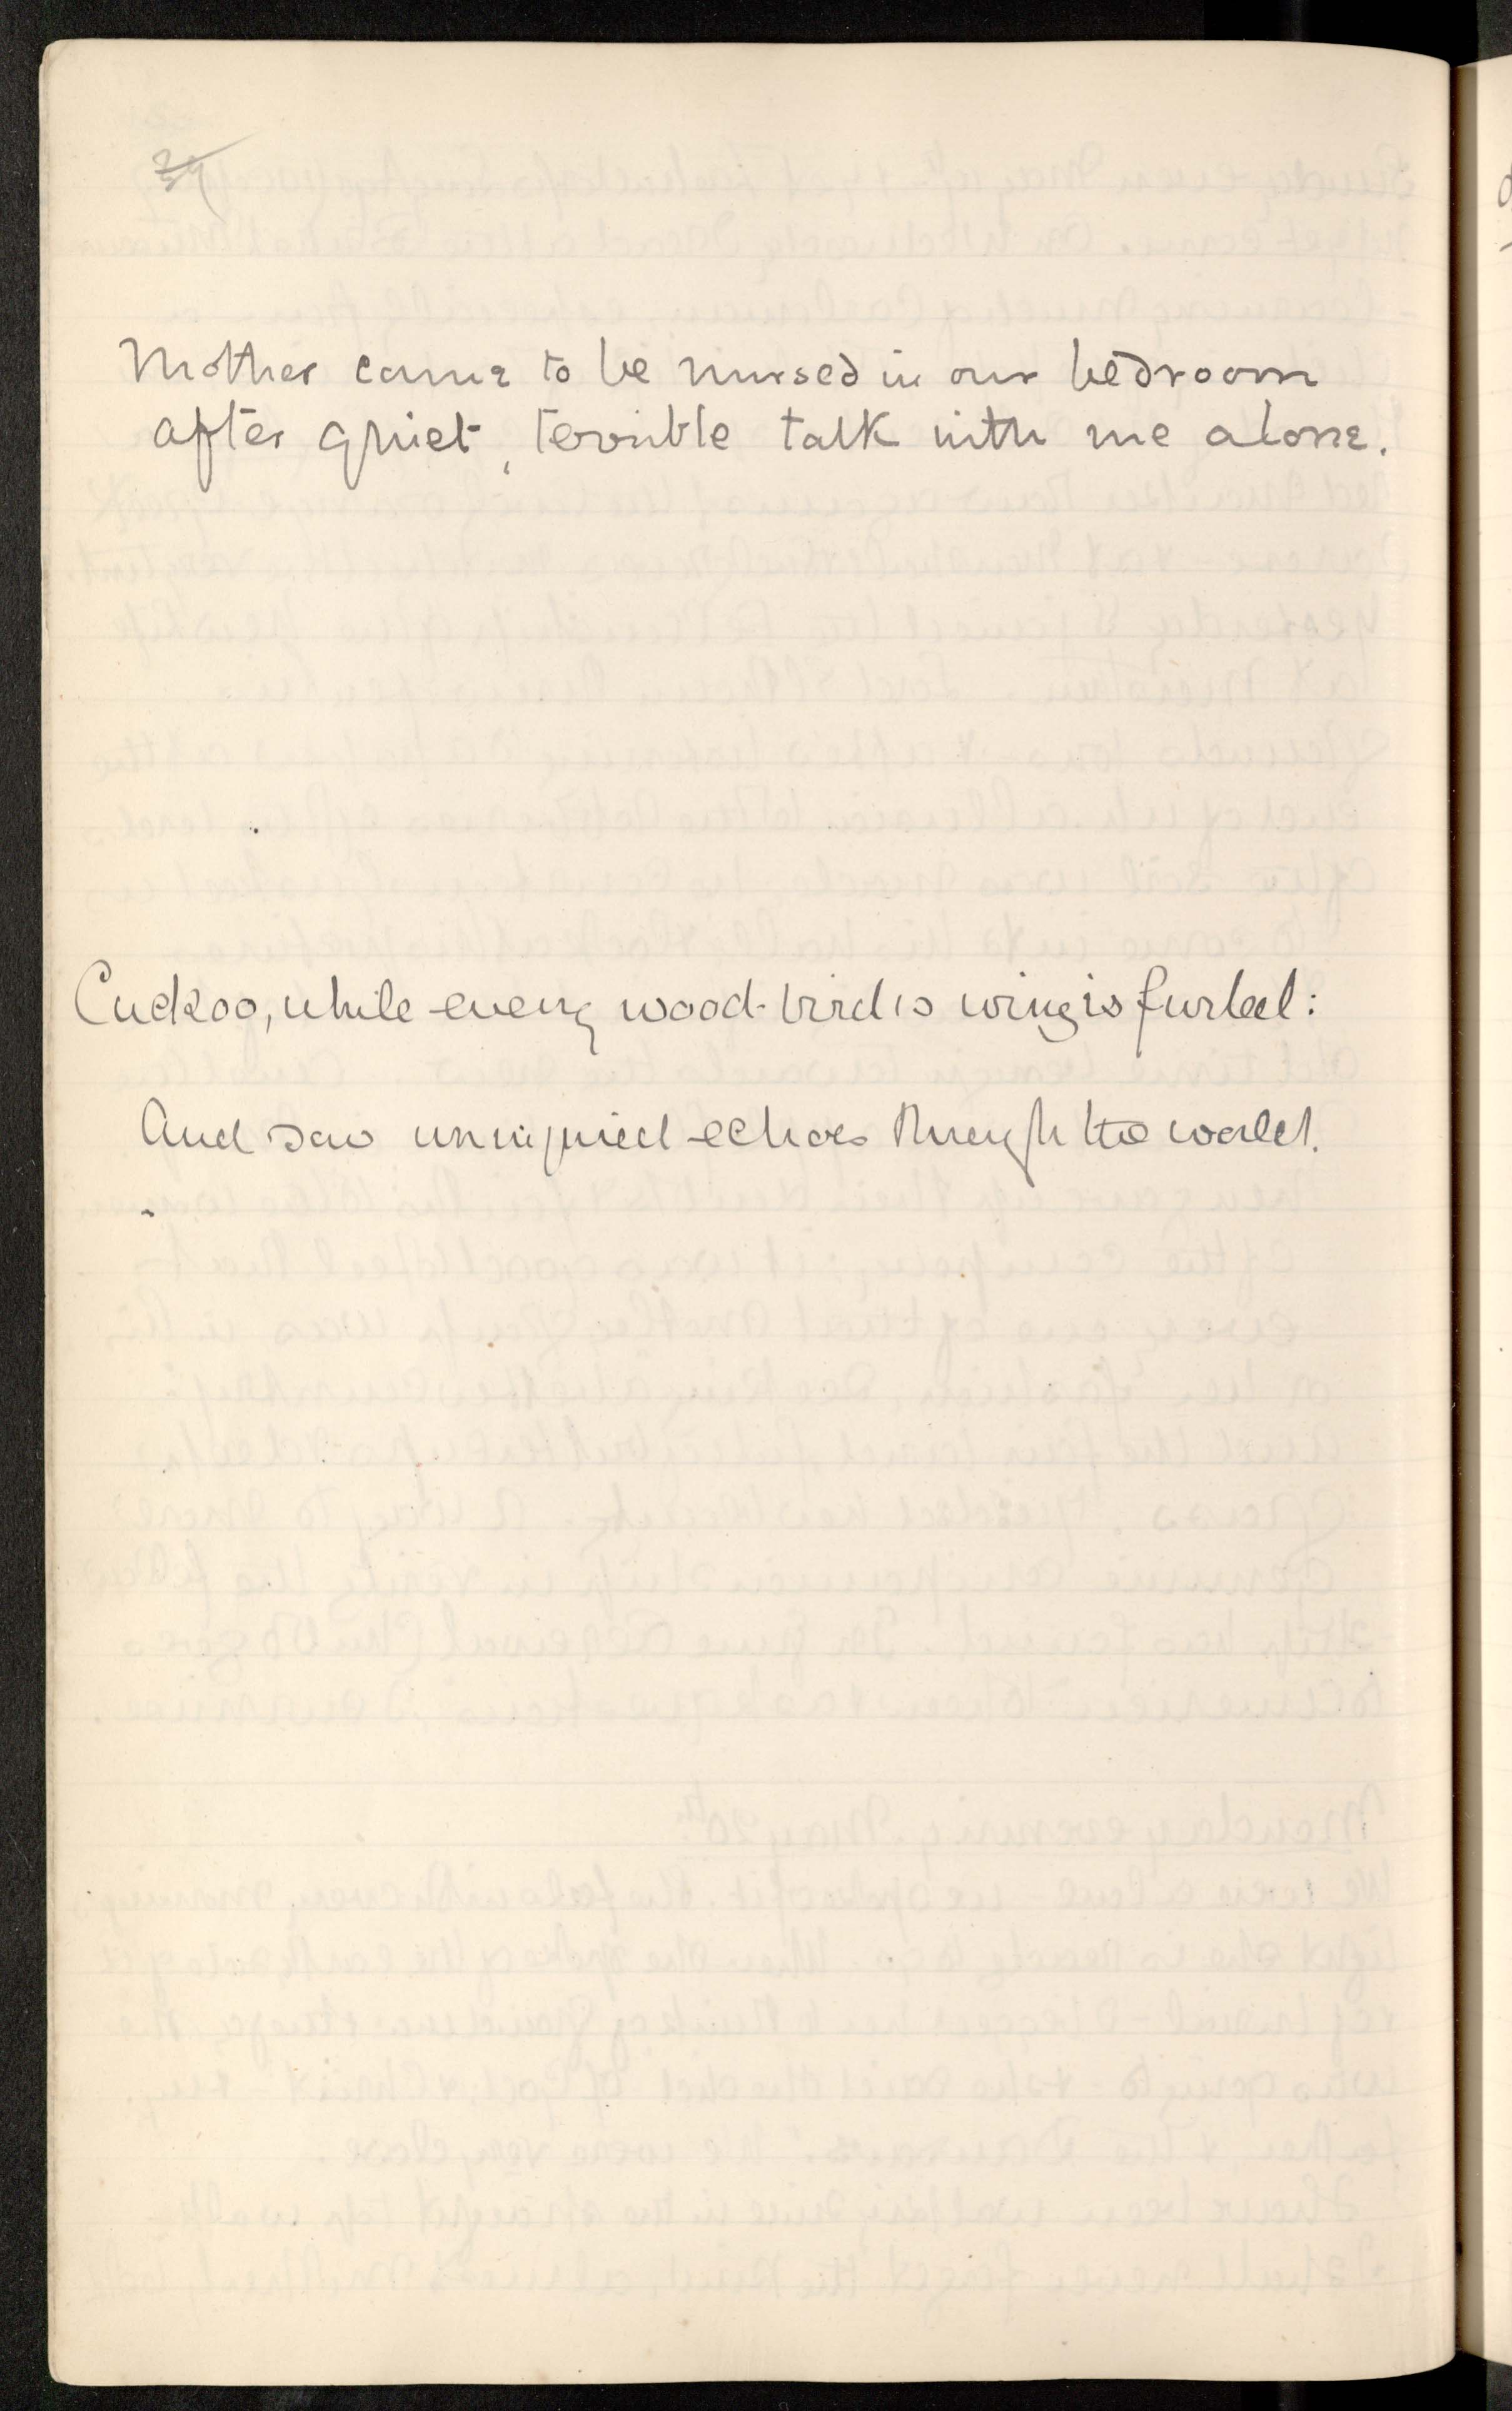 Mother came to be nursed in our bedroom
after quiet, terrible talk with me alone.
Cuckoo, while every wood-bird's wing is furled:
And saw uninjured echoes through the world.